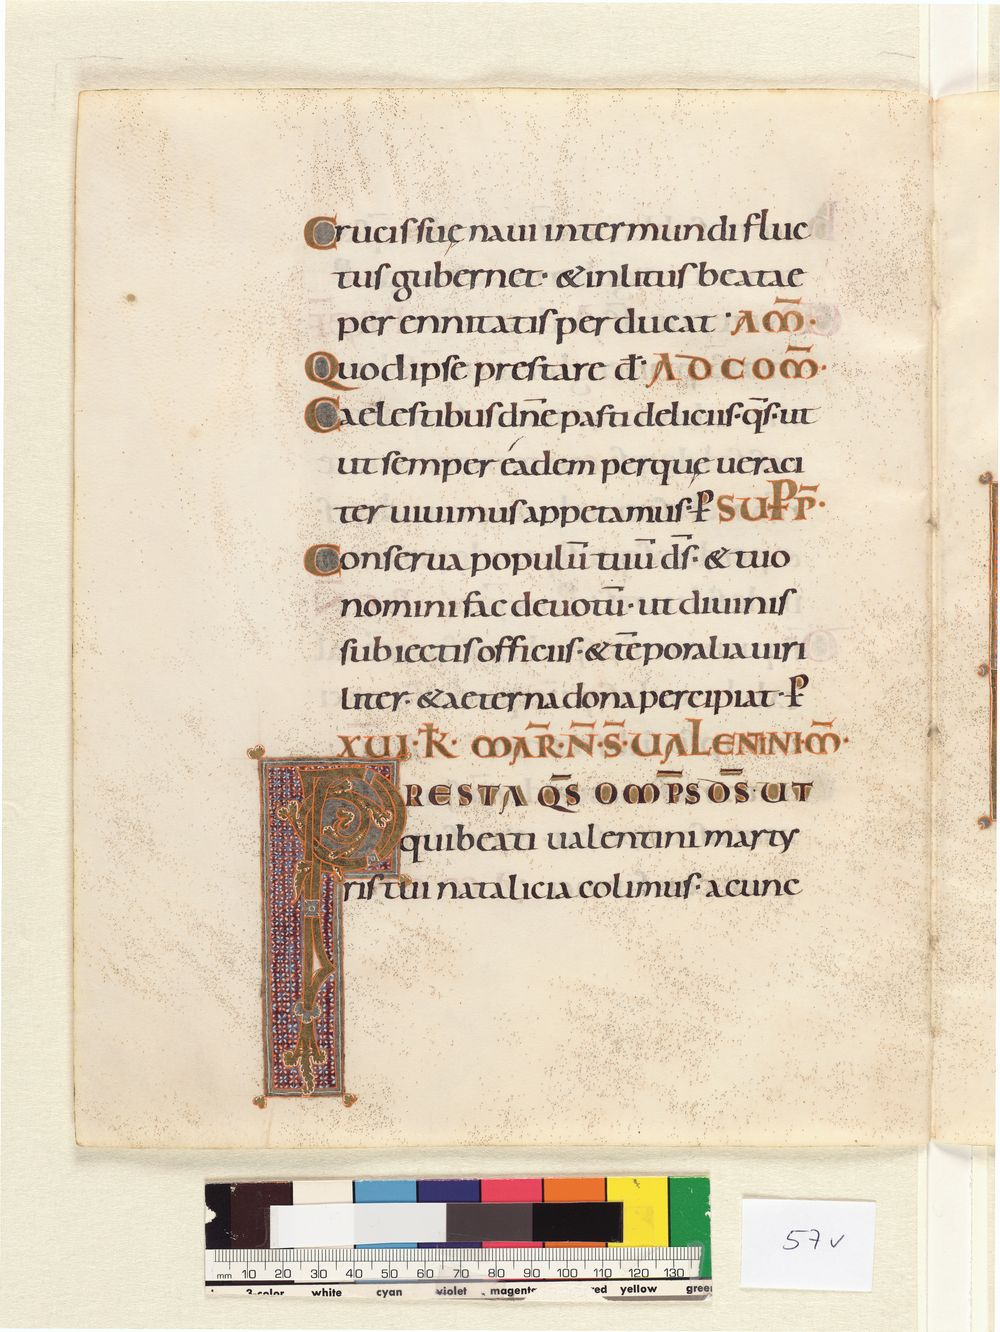 Crucis suę naui inter mundi fluc
tus gubernet· & in litus beatae
perennitatis perducat· AM̅·
Quod ipse prestare đ· AD COM̅·
Caelestibus dn̅e pasti deliciis· q̅s· ut
ut semper éadem per quę ueraci
ter uiuimus appetamus· P̵ SUPP̅·
Conserua populu̅ tuu̅ d̅s· & tuo
nomini fac deuotu̅· ut diuinis
subiectis officiis· & te̅poralia uiri
liter· & aeterna dona percipiat· P̵
XVI· K̵· MAR̅· N̅· S̅· UALENTINI M̅·
PRESTA Q̅S OMP̅S D̅S· UT
qui beati ualentini marty
ris tui natalicia colimus· a cunc
57v
mm 10 20 30 40 50 60 70 80 90 100 110 120 130
3-color white cyan violet magenta red yellow green